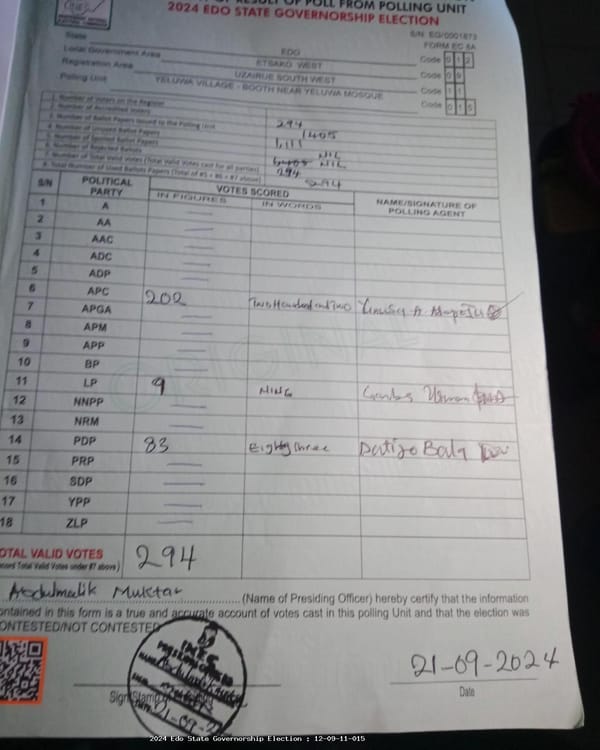 OF RESULT OF POLL FROM POLLING UNIT
2024 EDO STATE GOVERNORSHIP ELECTION
S/N: EG/0001873
FORM EC 8A
State EDO Code 0 1 2
Local Government Area ETSAKO WEST Code 0 9
Registration Area UZAIRUE SOUTH WEST Code 1 1
Polling Unit YELUWA VILLAGE - BOOTH NEAR YELUWA MOSQUE Code 0 1 5
1. Number of Voters on the Register
2. Number of Accredited Voters 294
3. Number of Ballot Papers Issued to the Polling Unit 1405
4. Number of Unused Ballot Papers 1,111
5. Number of Spoiled Ballot Papers NIL
6. Number of Rejected Ballots NIL
7. Number of Total Valid Votes (Total Valid Votes cast for all parties) 294
8. Total Number of Used Ballots Papers (Total of #5 + #6 + #7 above) 294
S/N POLITICAL PARTY VOTES SCORED NAME/SIGNATURE OF POLLING AGENT
IN FIGURES IN WORDS
1 A
2 AA
3 AAC
4 ADC
5 ADP
6 APC 202 Two Hundred and Two
7 APGA
8 APM
9 APP
10 BP
11 LP 9 NINE
12 NNPP
13 NRM
14 PDP 83 Eighty three Bala
15 PRP
16 SDP
17 YPP
18 ZLP
TOTAL VALID VOTES 294
(Record Total Valid Votes under #7 above)
Abdulmalik Muktar (Name of Presiding Officer) hereby certify that the information
contained in this form is a true and accurate account of votes cast in this polling Unit and that the election was
CONTESTED/NOT CONTESTED
INEC
21-09-2024
Date
2024 Edo State Governorship Election : 12-09-11-015